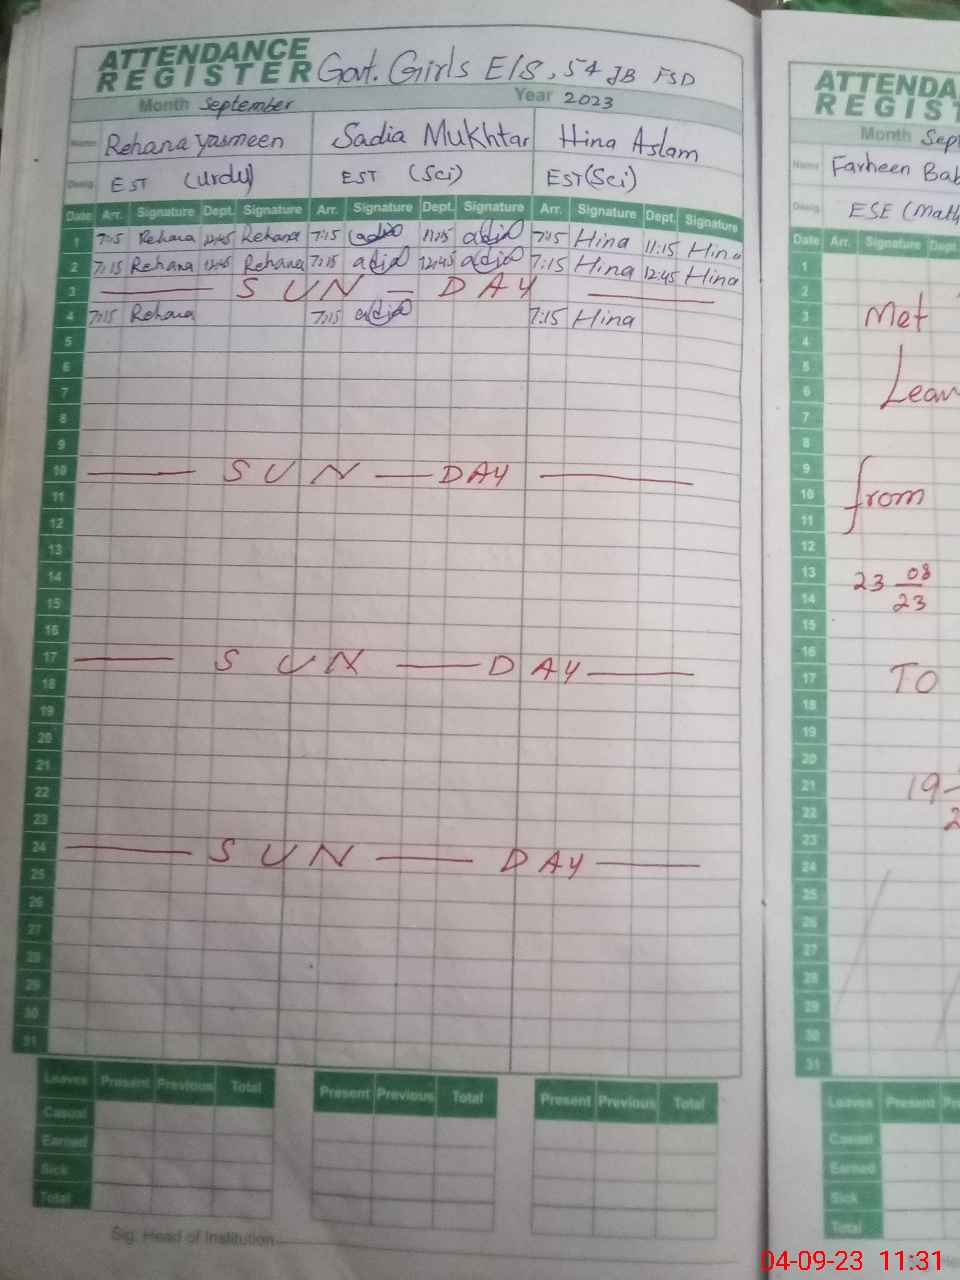 ATTENDANCE
REGISTER Govt. Girls E/S, 54 JB FSD
Month September Year 2023
Name Rehana Yasmeen Sadia Mukhtar Hina Aslam
Desig. EST (Urdu) EST (Sci) EST (Sci)
Date Arr. Signature Dept. Signature Arr. Signature Dept. Signature Arr. Signature Dept. Signature
1 7:15 Rehana Rehana 7:15 11:15 7:15 Hina 11:15 Hina
2 7:15 Rehana 12:45 Rehana 7:15 12:45 7:15 Hina 12:45 Hina
3 SUN - DAY
4 7:15 Rehana 7:15 7:15 Hina
5
6
7
8
9
10 SUN - DAY
11
12
13
14
15
16
17 SUN - DAY
18
19
20
21
22
23
24 SUN - DAY
25
26
27
28
29
30
31
Leaves Present Previous Total Present Previous Total Present Previous Total
Casual
Earned
Sick
Total
Sig: Head of Institution
ATTENDA
REGIST
Month Sept
Name Farheen Bab
Desig. ESE (Math
Date Arr. Signature Dept.
1
2
3 Met
4
5
6 Leav
7
8
9
10 from
11
12
13 23 08
14 23
15
16
17 TO
18
19
20
21 19-
22 2
23
24
25
26
27
28
29
30
31
Leaves Present Pre
Casual
Earned
Sick
Total
04-09-23 11:31